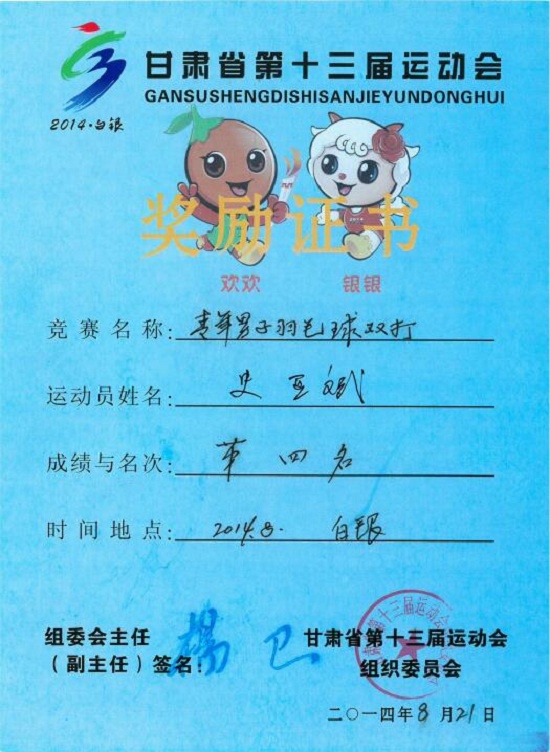 甘肃省第十三届运动会
GANSUSHENGDISHISANJIEYUNDONGHUI
2014·白银
奖励证书
欢欢 银银
竞赛名称:青年男子羽毛球双打
运动员姓名:史亚斌
成绩与名次:第四名
时间地点:2014.8. 白银
组委会主任
(副主任)签名:杨
甘肃省第十三届运动会
组织委员会
二〇一四年8月21日